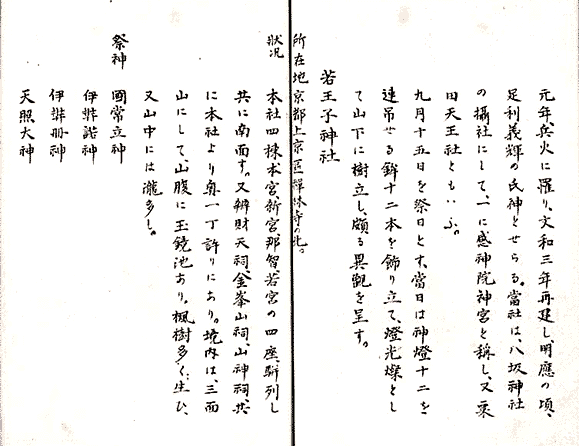 元年兵火に罹り、文和三年再建し、明應の頃、
足利義輝の氏神とせらる。當社は、八坂神社
の攝社にして、一に感神院神宮と稱し、又粟
田天王社ともいふ。
九月十五日を祭日とす、當日は神燈十二を
連吊せる鉾十二本を飾り立て、燈光燦とし
て山下に樹立し、頗る異觀を呈す。
若王子神社
所在地 京都上京區禪林寺の北。
狀況 本社四棟本宮新宮那智若宮の四座、駢列し
共に南面す。又辨財天祠、金峯山祠、山神祠、共
に本社より奧一丁許りにあり。境內は、三面
山にして、山腹に玉鏡池あり。楓樹多く生ひ、
又山中には瀧多し。
祭神 國常立神
伊弉諾神
伊弉冊神
天照大神